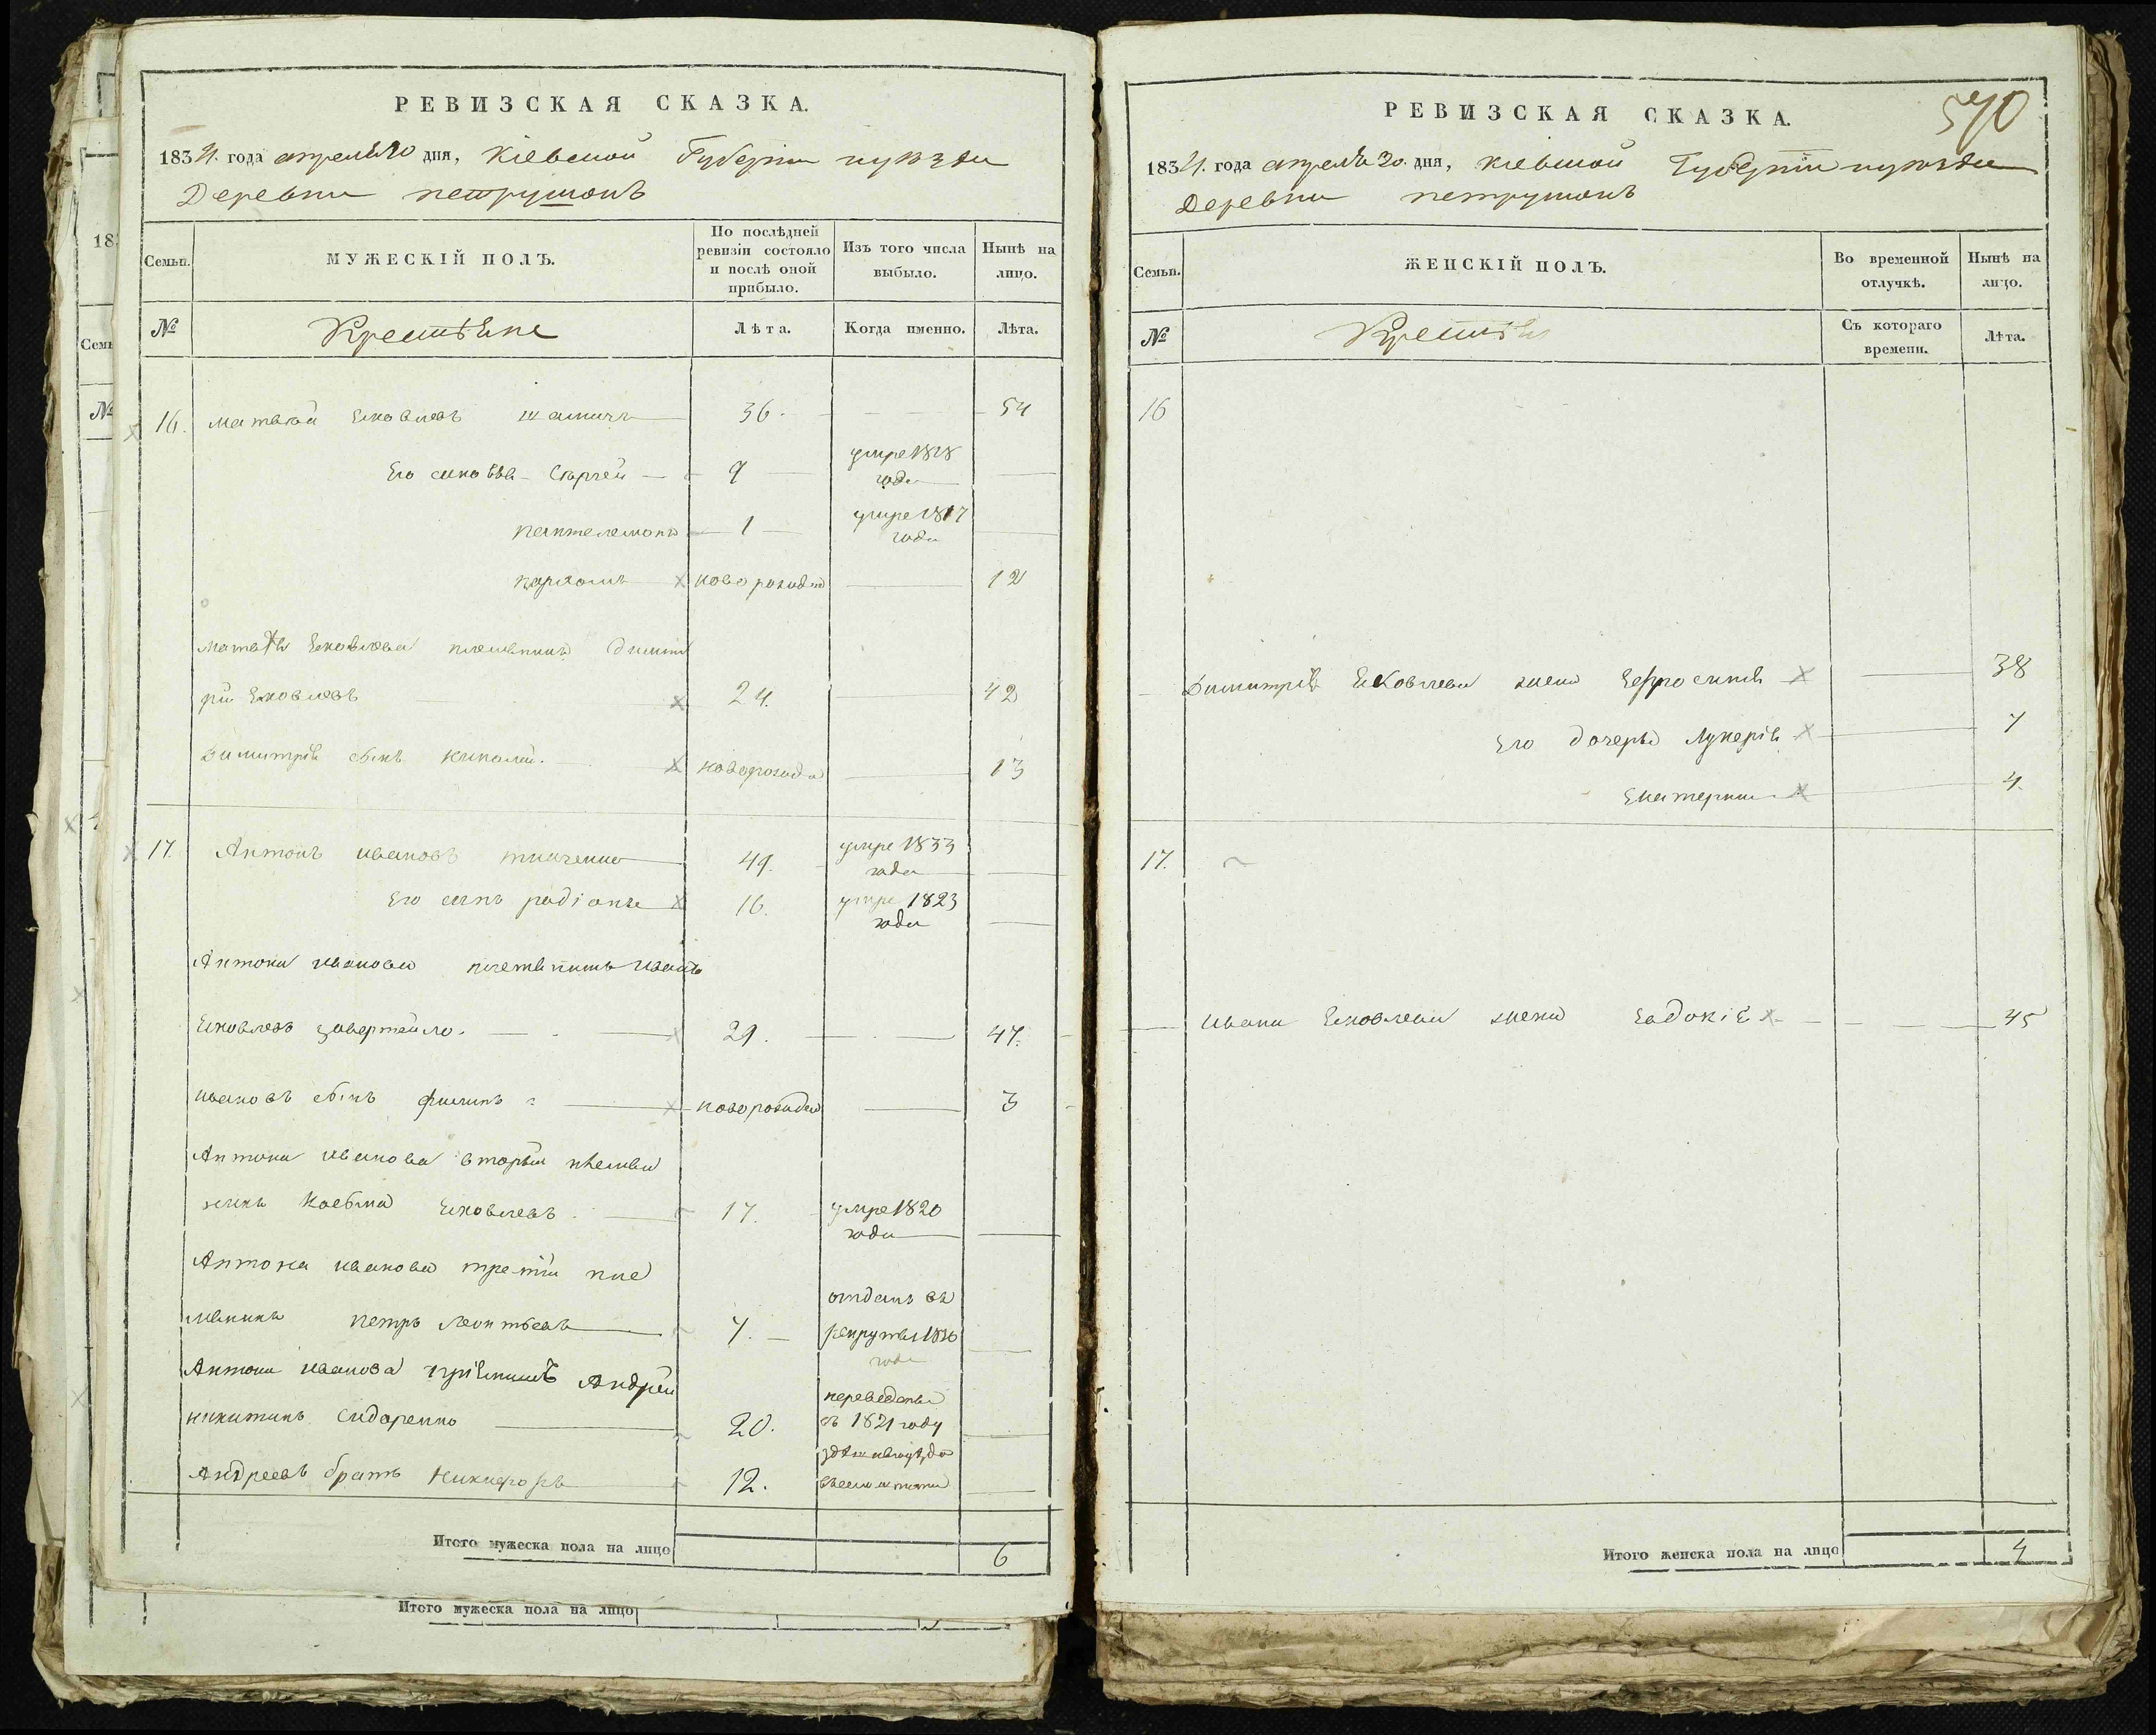 РЕВИЗСКАЯ СКАЗКА.
1834. года апрелѣ 30 дня, Кіевской Губерніи и уѣзда
Деревни петрушокъ
Семьи.
МУЖЕСКІЙ ПОЛЪ.
По послѣдней ревизіи состояло и послѣ оной прибыло.
Изъ того числа выбыло.
Нынѣ на лицо.
№
Крестьяне
Лѣта.
Когда именно.
Лѣта.
16. Матвѣй Яковлевъ 36. 54
Его синовья Сергей 9 умре 1828 года
пантелемонъ 1 умре 1817 года
пархомъ новорожден 12
Матвѣя Яковлева племѣникъ Димит
рій Яковлевъ 24. 42
Димитрія сынъ николай. новорожде 13
17. Антонъ ивановъ ткаченко 49. умре 1833 года
Его сынъ родіонъ 16. умре 1823 года
Антона иванова племѣникъ иванъ
Яковлевъ завертайло. 29. 47.
ивановъ сынъ филипъ новорожден 3
Антона иванова вторый племѣн
никъ Косьма Яковлевъ 17. умре 1820 года
Антона иванова третій пле
мѣникъ петръ Леонтьевъ 7. отданъ въ рекруты 1826 года
Антона иванова пріймишъ Андрей
никитинъ Сидоренко 20. переведены въ 1821 году
Андреевъ братъ Никифоръ 12.
Итого мужеска пола на лицо 6
Итого мужеска пола на лицо
РЕВИЗСКАЯ СКАЗКА.
570
1834. года апрелѣ 30. дня, Кіевской Губерніи и уѣзда
Деревни петрушокъ
Семьи.
ЖЕНСКІЙ ПОЛЪ.
Во временной отлучкѣ.
Нынѣ на лицо.
№
Крестьян
Съ котораго времени.
Лѣта.
16
Димитрія Яковлева жена Ефросинія 38
Его дочеръ Лукерія 7
Екатерина 4.
17.
Ивана Яковлева жена Евдокіѣ 45
Итого женска пола на лицо 4